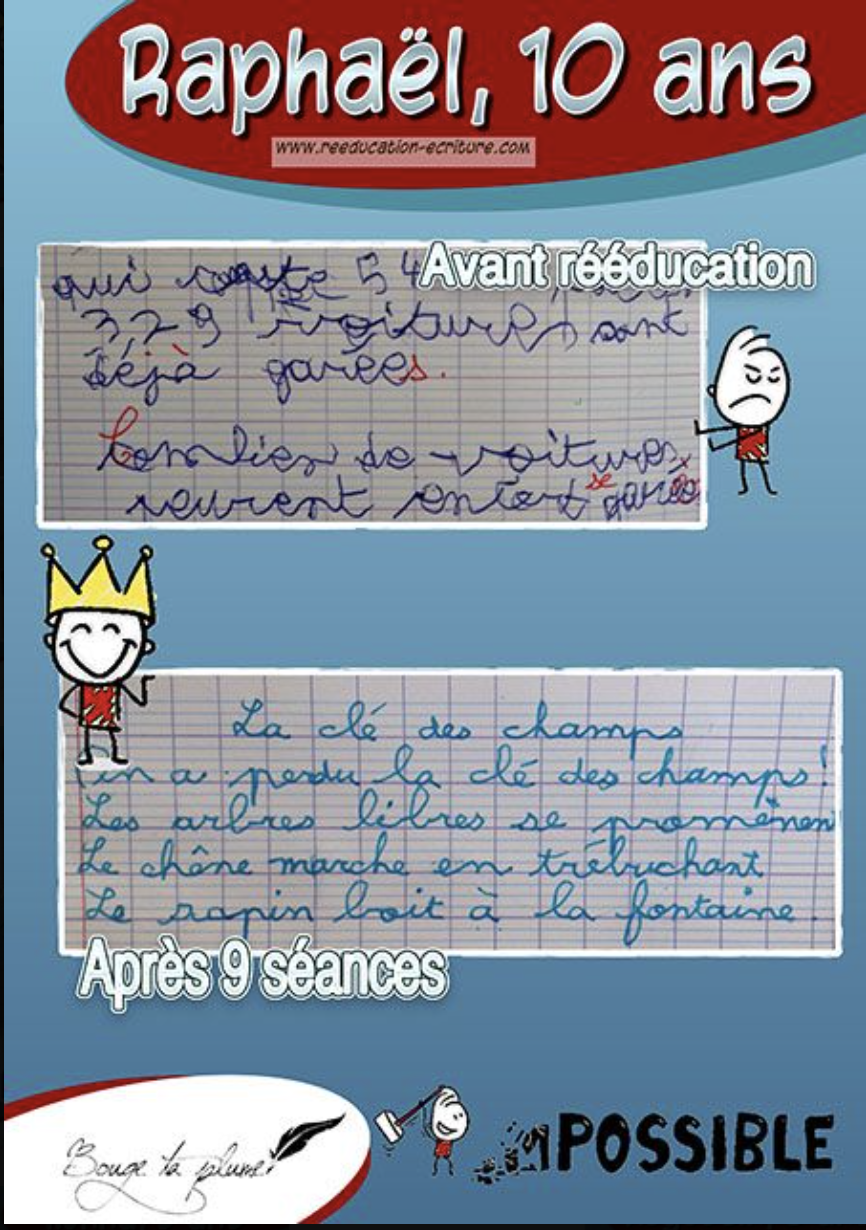 Raphaël, 10 ans
www.reeducation-ecriture.com
Avant rééducation
qui reste 54
329 voitures sont
déjà garées.
Combien de voitures
peuvent se garées
La clé des champs
On a perdu la clé des champs!
Les arbres libres se promènen
Le chêne marche en trébuchant
Le sapin boit à la fontaine.
Après 9 séances
Bouge ta plume!
IMPOSSIBLE